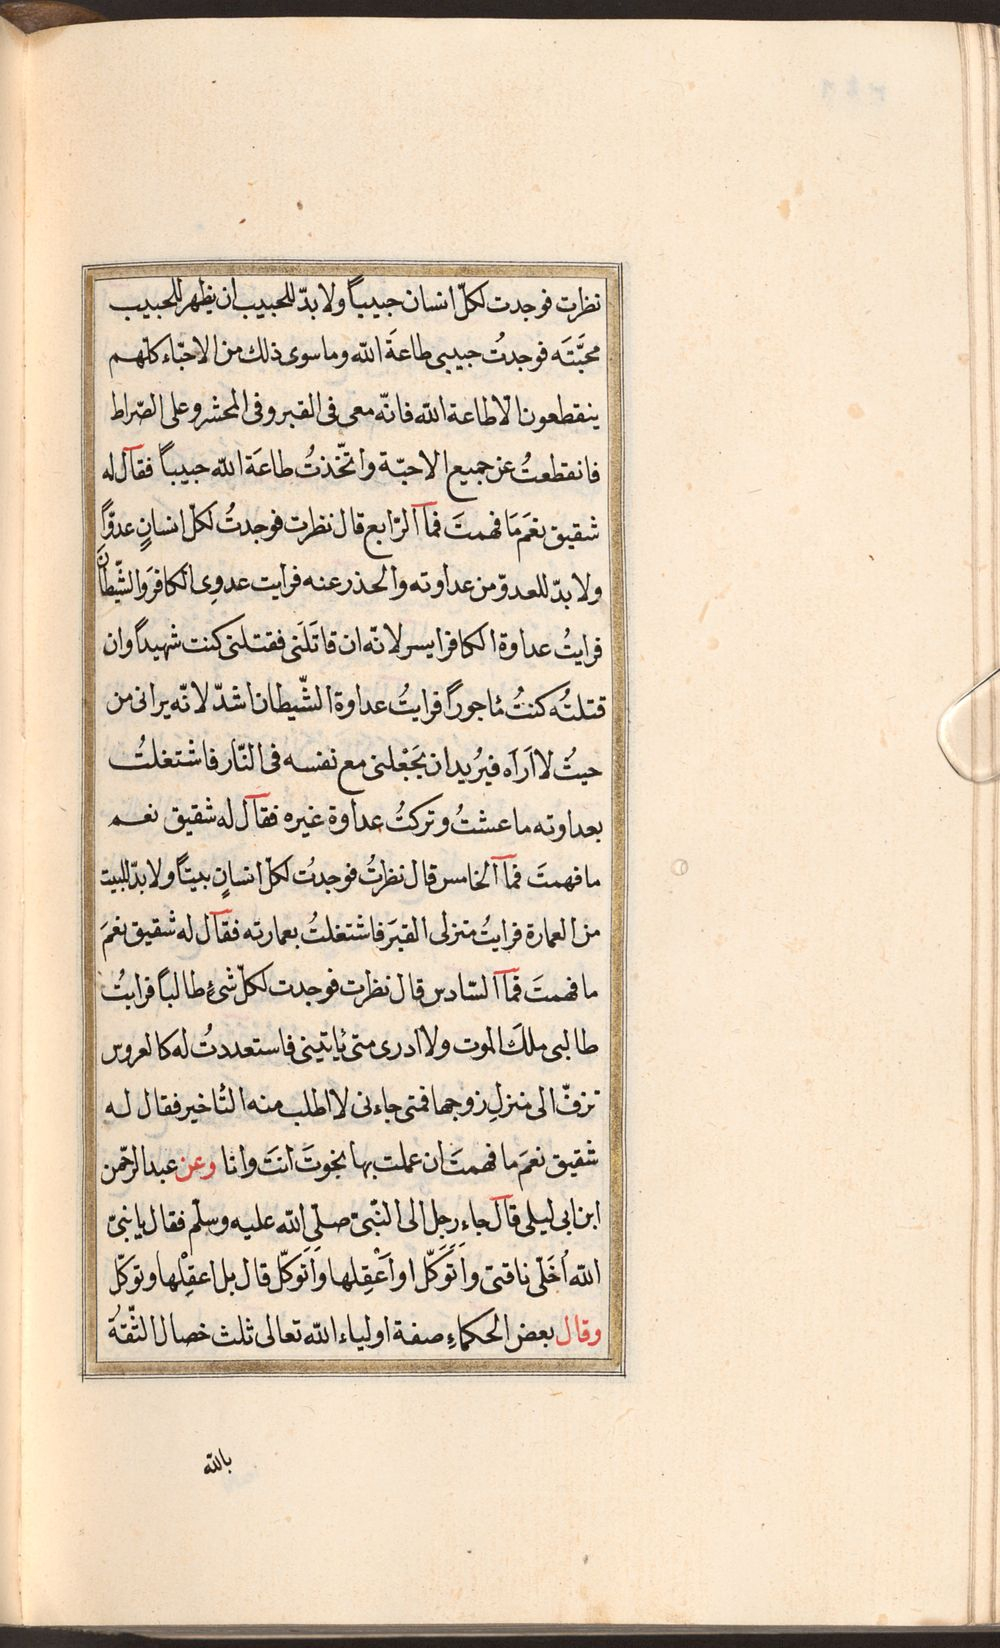 نظرت فوجدت لكلّ انسان حبيباً ولا بدّ للحبيب ان يظهر للحبيب
محبّتَه فوجدتُ حبيبى طاعةَ الله وما سوى ذلك من الاحبّاء كلّهم
ينقطعون الّا طاعة الله فانّه معى فى القبر وفى المحشر وعلى الصّراط
فانقطعتُ عن جميع الاحبّة واتّخذتُ طاعَة الله حبيباً فقال له
شقيق نعَم مَا فهمتَ فما الرّابع قال نظرت فوجدتُ لكلّ انسانٍ عدوّاً
ولا بدّ للعدوّ من عداوته والحذر عنه فرايت عدوِى الكافرَ والشّيطانَ
فرايتُ عداوة الكافر ايسر لانّه ان قاتَلَنى فقتلنى كنت شهيداً وان
قتلتُه كنتُ مأجوراً فرايتُ عداوة الشّيطان اشدّ لانّه يرانى من
حيثُ لا اَرَاه فيرُيد ان يَجْعَلنى مع نفسه فى النّار فاشتغلتُ
بعداوته ما عشتُ وتركتُ عداوة غيره فقال له شقيق نعم
ما فهمتَ فما الخامس قال نظرتُ فوجدتُ لكلّ انسانٍ بيتاً ولا بدّ للبيت
من العمارة فرايتُ منزلى القبرَ فاشتغلتُ بعمارته فقال له شقيق نعَمَ
ما فهمتَ فما السّادس قال نظرت فوجدت لكلّ شىءٍ طالباً فرايتُ
طالبى ملكَ الموت ولا ادرى متى يأتينى فاستعددتُ له كالعروس
تزفّ الى منزلِ زوجها فمتى جاءنى لا اطلب منه التأخير فقال له
شقيق نعَم ما فهمتَ ان عملت بها نجوتَ انتَ وانا وعن عبد الرّحمن
ابن ابى ليلى قال جاء رجل الى النّبىّ صلّى الله عليه وسلّم فقال يا نبىّ
الله اُخَلّى ناقتى واَتَوَكّل او اَعْقِلها واَتوكّل قال بل اعقِلْها وتوكّل
وقال بعض الحكماءِ صفة اولياء الله تعالى ثلث خصال الثّقةُ
بالله